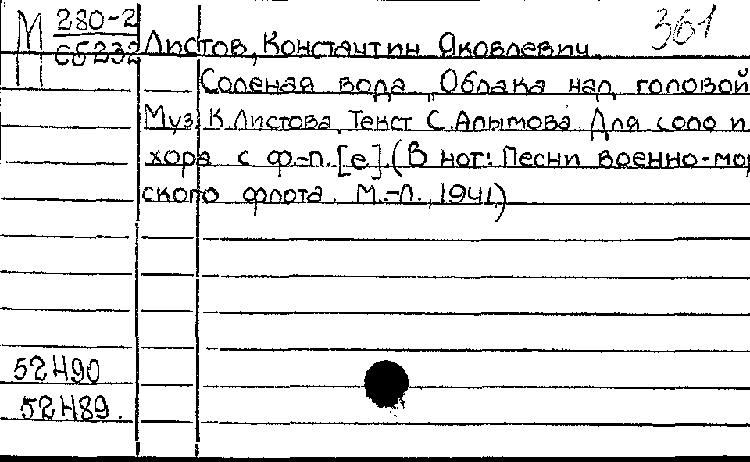 М 280-2 361
Сб232 Листов, Константин Яковлевич.
Соленая вода „Облака над головой
Муз. К. Листова. Текст С. Алымова. Для соло и
хора с ф.-п. [e]. (В нот: Песни военно-мор
ского флота. М.-Л., 1941.)
52490
52489.